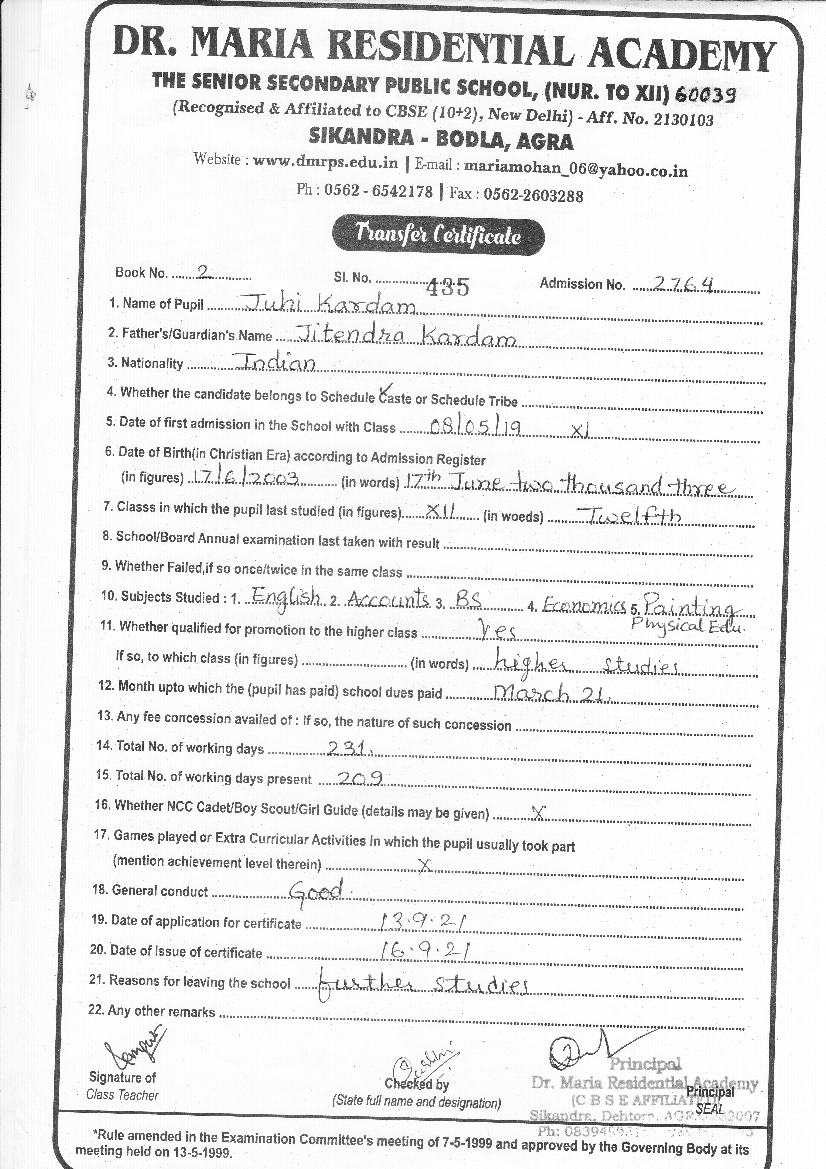 DR. MARIA RESIDENTIAL ACADEMY
THE SENIOR SECONDARY PUBLIC SCHOOL, (NUR. TO XII) 60039
(Recognised & Affiliated to CBSE (10+2), New Delhi) - Aff. No. 2130103
SIKANDRA - BODLA, AGRA
Website : www.dmrps.edu.in | E-mail : mariamohan_06@yahoo.co.in
Ph : 0562 - 6542178 | Fax : 0562-2603288
Transfer Certificate
Book No. ...... 2 ............ Sl. No. .............. 435 Admission No. ..... 2764 ...........
1. Name of Pupil ........ Juhi Kardam ........
2. Father's/Guardian's Name ..... Jitendra Kardam ........
3. Nationality ........... Indian ........
4. Whether the candidate belongs to Schedule Caste or Schedule Tribe ........
5. Date of first admission in the School with Class ....... 08/05/19 XI ........
6. Date of Birth(in Christian Era) according to Admission Register
(in figures) .. 17/6/2003 .......... (in words) 17th June two thousand three ....
7. Classs in which the pupil last studied (in figures)...... XII ...... (in woeds) ......... Twelfth ........
8. School/Board Annual examination last taken with result ........
9. Whether Failed,if so once/twice in the same class ........
10. Subjects Studied : 1. English 2. Accounts 3. BS .......... 4. Economics 5. Painting
Physical Edu.
11. Whether qualified for promotion to the higher class ........ Yes ........
If so, to which class (in figures) ........ (in words) ..... higher studies ........
12. Month upto which the (pupil has paid) school dues paid ........ March 21. ........
13. Any fee concession availed of : If so, the nature of such concession ........
14. Total No. of working days ........ 231. ........
15. Total No. of working days present ..... 209 ........
16. Whether NCC Cadet/Boy Scout/Girl Guide (details may be given) ........ X ........
17. Games played or Extra Curricular Activities in which the pupil usually took part
(mention achievement level therein) ........ X ........
18. General conduct ........ Good. ........
19. Date of application for certificate ........ 13.9.21 ........
20. Date of Issue of certificate ........ 16.9.21 ........
21. Reasons for leaving the school ...... further studies ........
22. Any other remarks ........
Signature of
Class Teacher
Checked by
(State full name and designation)
Principal
Dr. Maria Residential Academy
Principal
(C B S E AFFILIATED)
SEAL
Sikandra,
*Rule amended in the Examination Committee's meeting of 7-5-1999 and approved by the Governing Body at its
meeting held on 13-5-1999.